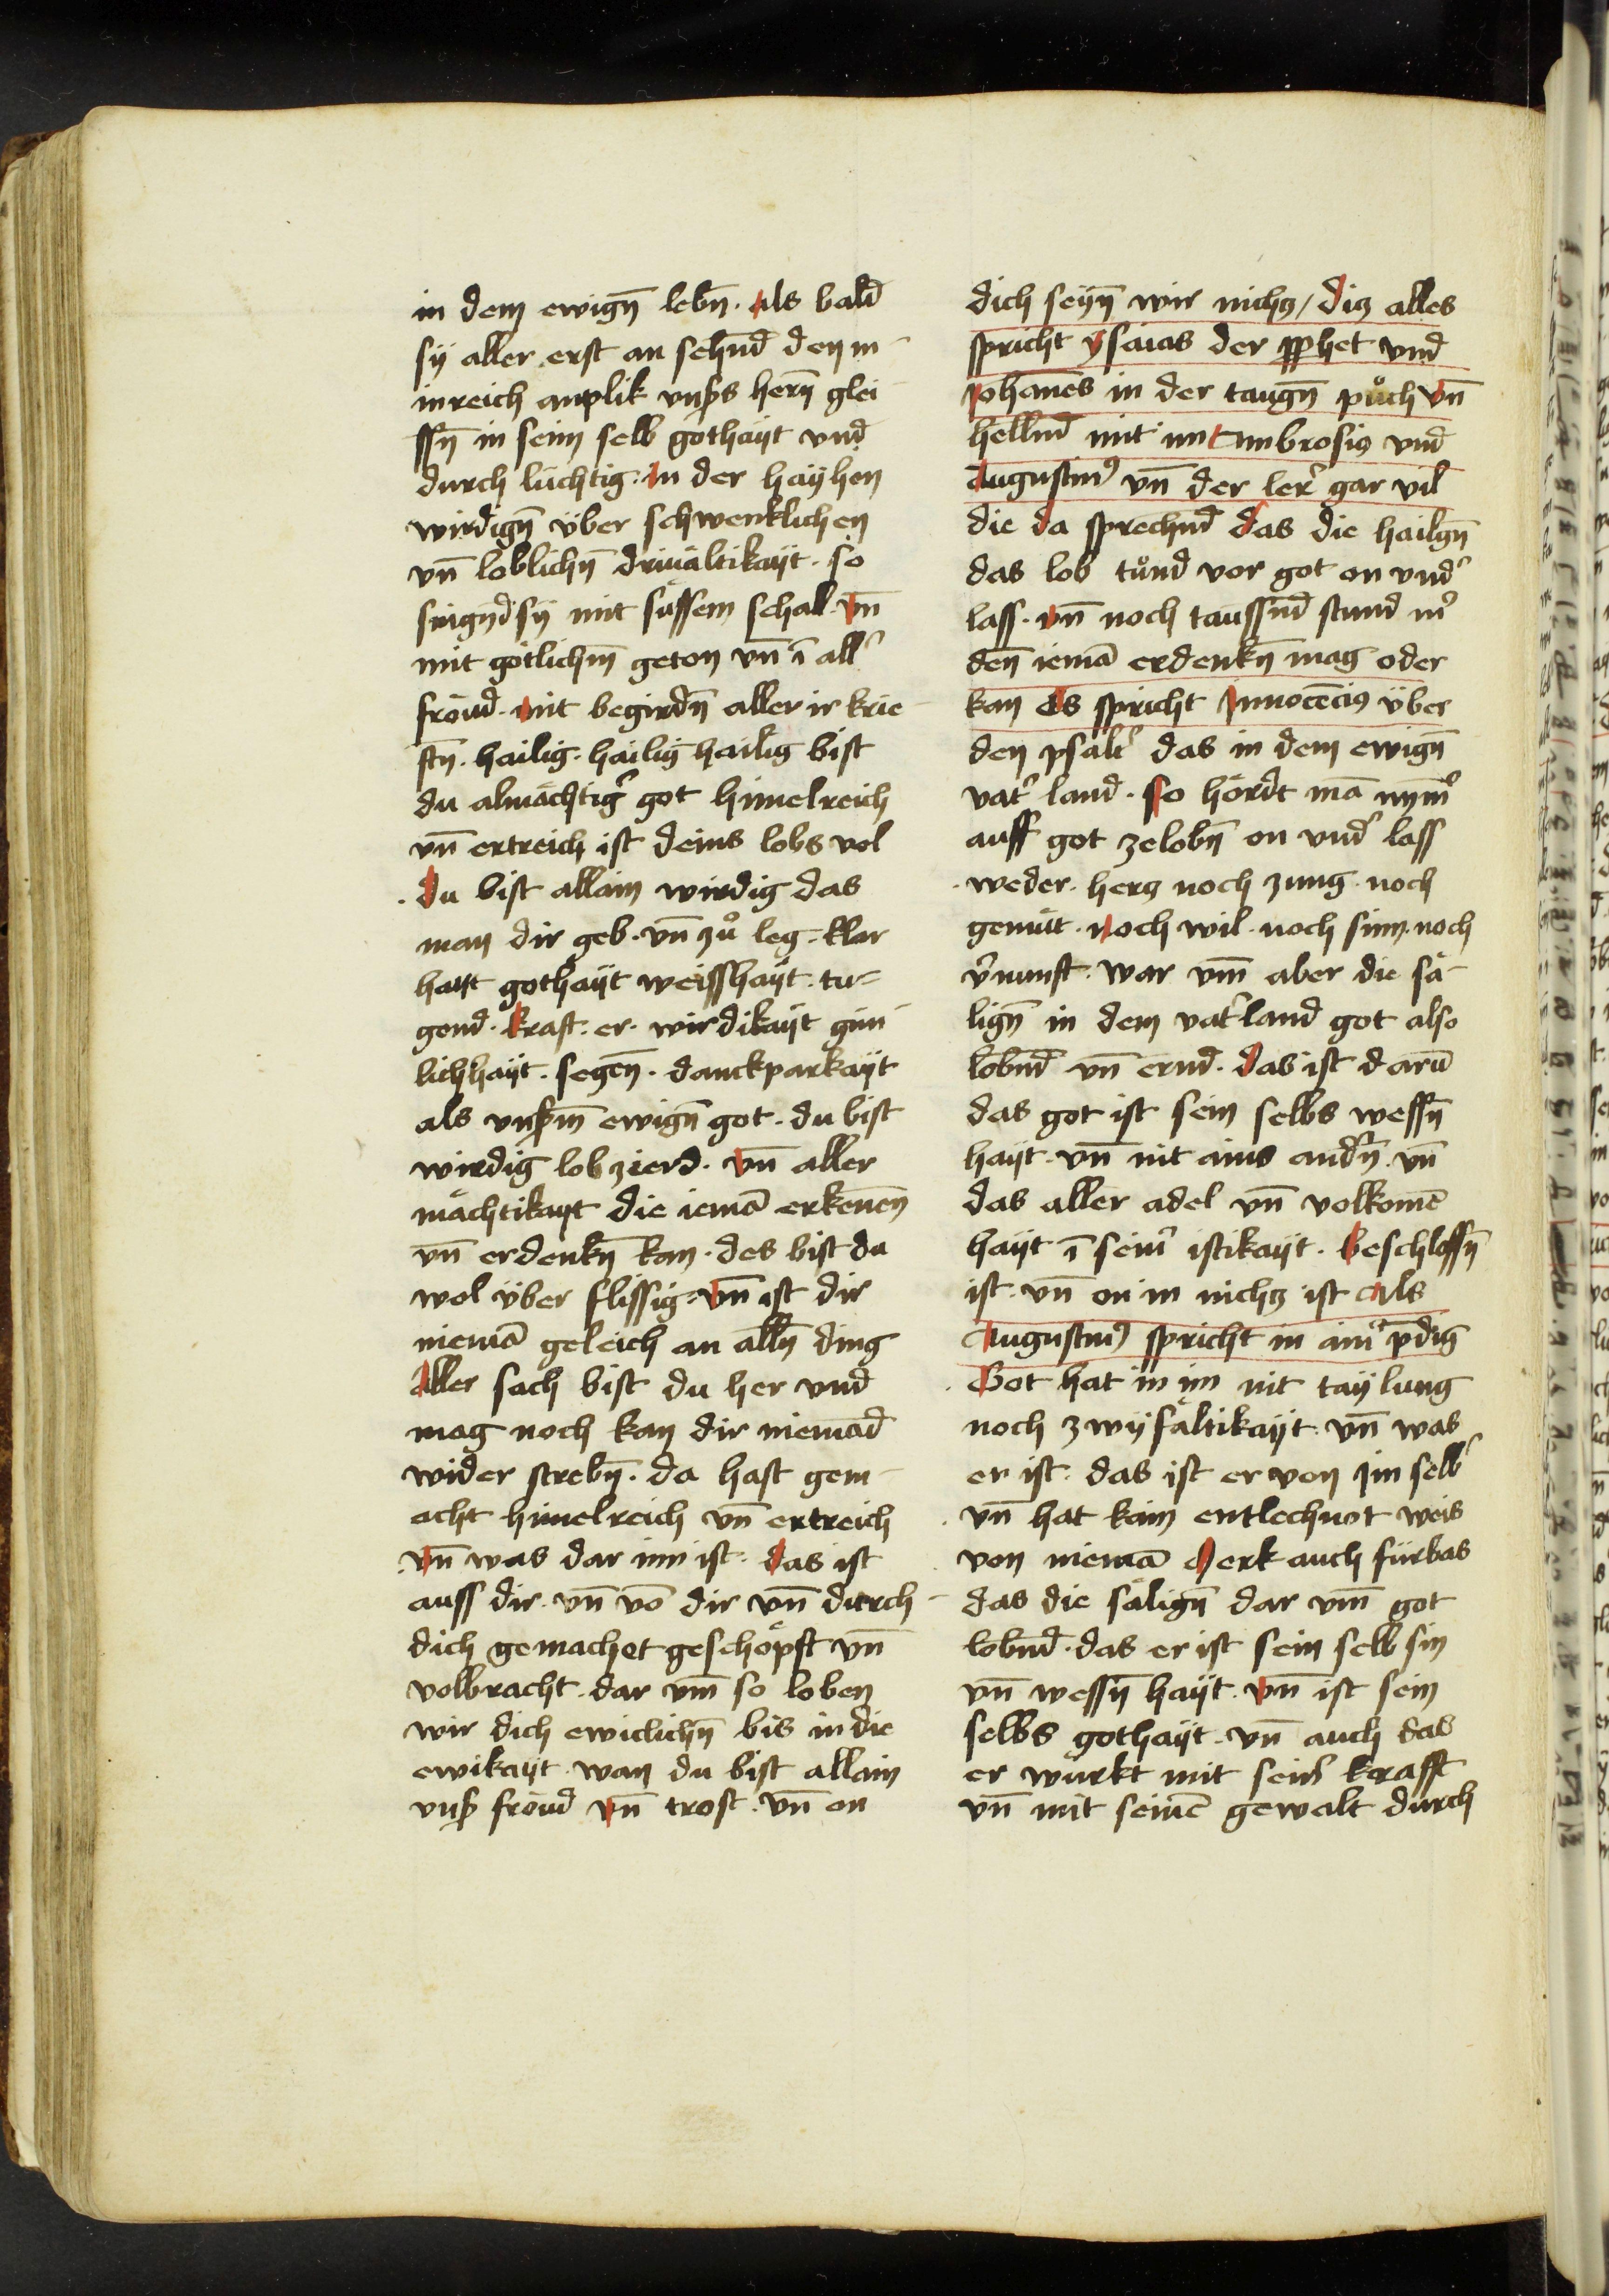 in dem ewign̄ lebn̄. Als bald
sÿ aller erst an sehnd̄ den in-
inreich anplik vnsͬs hern̄ glei
ssn̄ in seim selb gothaÿt vnd
durch lu̇chtig. In der haÿhen
wirdign̄ über schwenklichen
vn̄ loblichn̄ driuältikaÿt. so
singn̄d sÿ mit sússem schall. Vn̄
mit götlichm̄ geton vn̄ ī allˀ
fröud. Mit begirdn̄ aller ir krie
ftn̄. hailig. hailig hailig bist
du almächtigˀ got himelreich
vn̄ ertreich ist deins lobs vol
. Du bist allain wirdig das
man dir geb. vn̄ zů leg. klar
hait gothaÿt weisshaÿt. tu-
gend. Kraft. er. wirdikaÿt gün
lichhaÿt. segen̄. danckparkaÿt
als vnsͬm̄ ewign̄ got. du bist
wirdig lob zierd. Vn̄ aller
mächtikayt die iemā erkenen̄
vn̄ erdenkn̄ kan. des bist du
wol über flissig. Vn̄ ist dir
niemā geleich an alln̄ ding
Aller sach bist du her vnd
mag noch kan dir niemād
wider strebn̄. da hast gem-
acht himelreich vn̄ ertreich
. Vn̄ was dar inn ist. Das ist
auss dir. vn̄ vō dir vn̄ durch-
dich gemachet geschöpft vn̄
volbracht. dar vm̄ so loben
wir dich ewiclichn̄ bis in die
ewikaÿt. wan du bist allain
vnsͬ fröud Vn̄ trost. vn̄ on
dich seÿn̄ wir nichz / Diz alles
spricht Ysaias der ꝓphet vnd
Johanēs in der taugn̄ půch Vn̄
hellnd̄ mit im Ambrosiꝰ vnd
Augustinꝰ vn̄ der lerˀ gar vil
die Da sprechnd̄ Das die hailgn̄
das lob tu̇nd vor got on vndˀ
lass. Vn̄ noch taussnd̄ stund mˀ
den̄ iemā erdenkn̄ mag oder
kan Es spricht Innocēciꝰ über
den psaltˀ das in dem ewign̄
vatˀ land. So hördt mā nym̄ˀ
auff got zelobn̄ on vndˀ lass
. weder. herz noch zung. noch
gemüt. Noch wil. noch sinn. noch
vˀnunft. war vm̄ aber die sä-
lign̄ in dem vatˀland got also
lobnd̄ vn̄ ernd̄. Das ist darū
das got ist sein selbs wessn̄
haÿt. vn̄ nit ains andˀn̄. vn̄
das aller adel vn̄ volkomē
haÿt ī seinˀ istikaÿt. Beschlossn̄
ist. vn̄ on in nichz ist Als
Augustinꝰ spricht in aimˀ p̄dig
. Got hat in im nit taÿlung
noch zwÿfältikaÿt. vn̄ was
er ist. das ist er von im selbˀ
. vn̄ hat kain entlechnot weis
von niemā Merk auch fürbas
das die sälign̄ dar vm̄ got
lobnd̄. das er ist sein selb sin
vn̄ wessn̄ haÿt. Vn̄ ist sein
selbs gothaÿt. vn̄ auch das
er würkt mit seinˀ krafft
vn̄ mit seinē gewalt durch